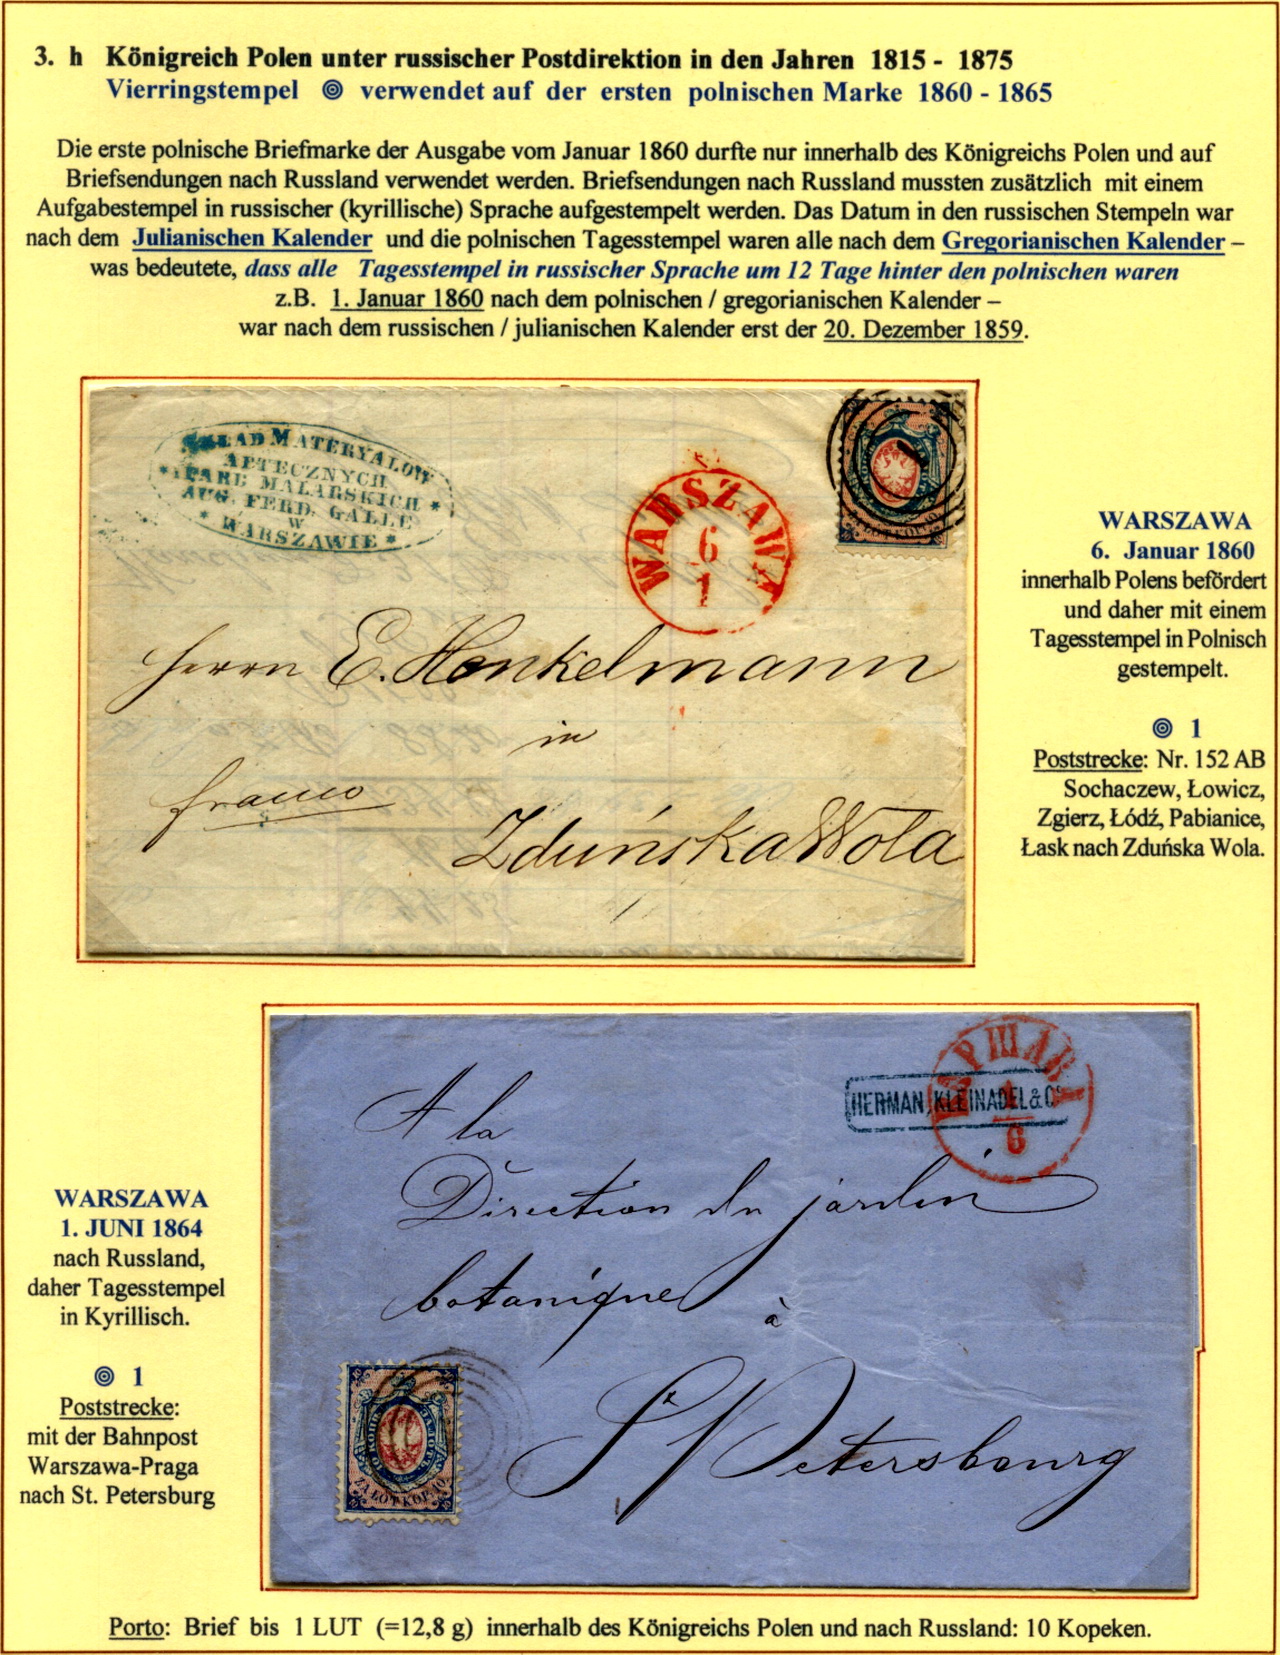 3. h Königreich Polen unter russischer Postdirektion in den Jahren 1815 - 1875
Vierringstempel verwendet auf der ersten polnischen Marke 1860 - 1865
Die erste polnische Briefmarke der Ausgabe vom Januar 1860 durfte nur innerhalb des Königreichs Polen und auf
Briefsendungen nach Russland verwendet werden. Briefsendungen nach Russland mussten zusätzlich mit einem
Aufgabestempel in russischer (kyrillische) Sprache aufgestempelt werden. Das Datum in den russischen Stempeln war
nach dem Julianischen Kalender und die polnischen Tagesstempel waren alle nach dem Gregorianischen Kalender –
was bedeutete, dass alle Tagesstempel in russischer Sprache um 12 Tage hinter den polnischen waren
z.B. 1. Januar 1860 nach dem polnischen / gregorianischen Kalender –
war nach dem russischen / julianischen Kalender erst der 20. Dezember 1859.
SKLAD MATERYALOW
APTECZNYCH
* FARB MALARSKICH *
AUG. FERD. GALLE
W
* WARSZAWIE *
WARSZAWA
6
1
1
ZA LOT KOP. 10.
Herrn E. Henkelmann
in
franco
Zduńska Wola
WARSZAWA
6. Januar 1860
innerhalb Polens befördert
und daher mit einem
Tagesstempel in Polnisch
gestempelt.
1
Poststrecke: Nr. 152 AB
Sochaczew, Łowicz,
Zgierz, Łódź, Pabianice,
Łask nach Zduńska Wola.
ВАРШАВА
1
6
HERMAN, KLEINADEL & Co
A la
Direction du jardin
botanique
à
St Petersbourg
10 КОП. ЗА ЛОТЪ
ZA LOT KOP. 10.
WARSZAWA
1. JUNI 1864
nach Russland,
daher Tagesstempel
in Kyrillisch.
1
Poststrecke:
mit der Bahnpost
Warszawa-Praga
nach St. Petersburg
Porto: Brief bis 1 LUT (=12,8 g) innerhalb des Königreichs Polen und nach Russland: 10 Kopeken.